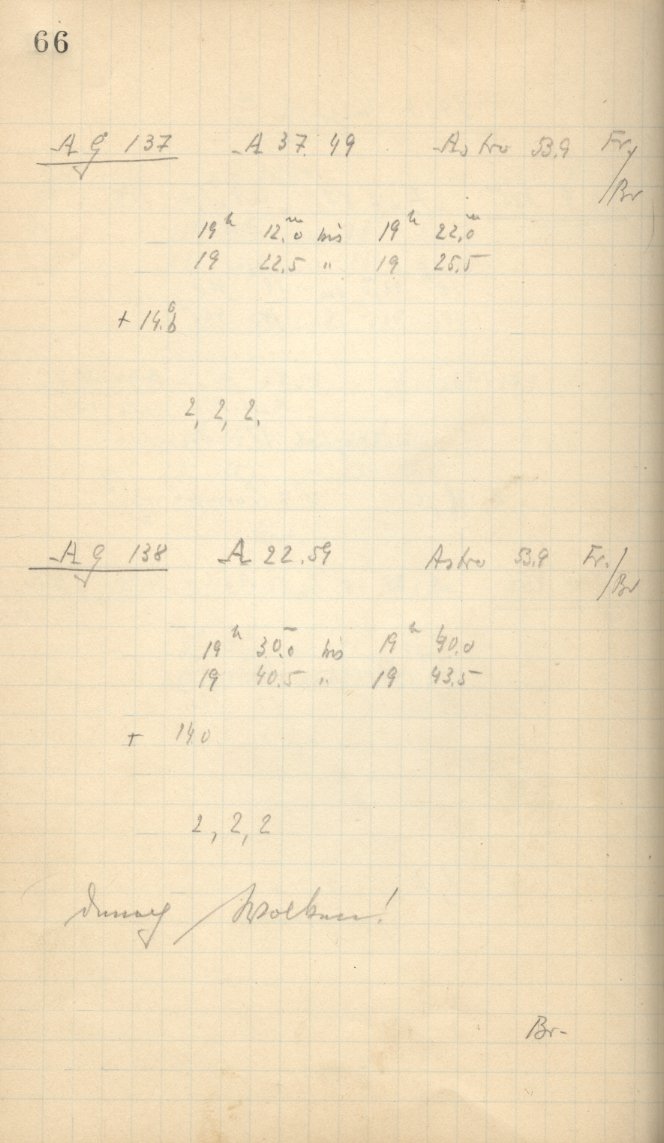 66
AG 137 A 37.49 Astro 53.9 Fr/Br
19h 12.m0 bis 19h 22.m0
19 22.5 " 19 25.5
+ 14.°6
2, 2, 2,
AG 138 A 22.59 Astro 53.9 Fr./Br
19h 30.0 bis 19h 40.0
19 40.5 " 19 43.5
+ 14.0
2, 2, 2
Wolken!
Br-